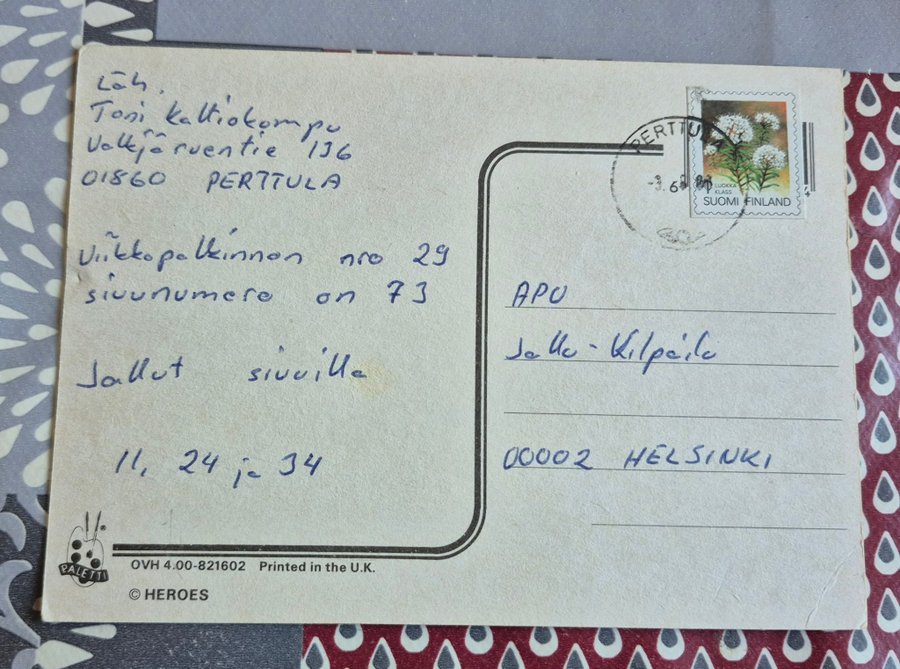 Läh.
Toni Kaltiokumpu
Valkjärventie 136
01860 PERTTULA
Viikkopalkinnon nro 29
sivunumero on 73
Jallut sivuilla
11, 24 ja 34
PERTTULA
LUOKKA
KLASS
SUOMI FINLAND
APU
Jallu-Kilpailu
00002 HELSINKI
PALETTI
OVH 4.00-821602 Printed in the U.K.
© HEROES